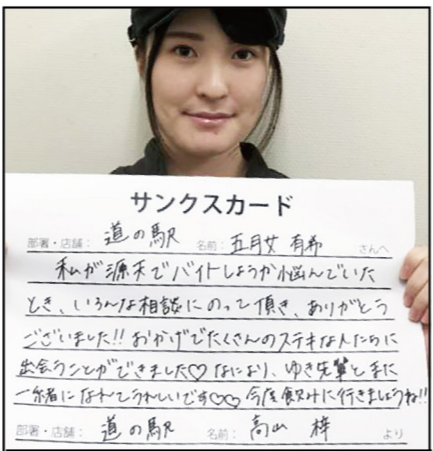 サンクスカード
部署・店舗： 道の駅 名前： 五月女 有希 さんへ
私が源天でバイトしようか悩んでいた
とき、いろんな相談にのって頂き、ありがとう
ございました!! おかげでたくさんのステキな人たちに
出会うことができました♡ なにより、ゆき先輩とまた
一緒になれてうれしいです♡♡ 今度飲みに行きましょうね!!
部署・店舗： 道の駅 名前： 高山 梓 より